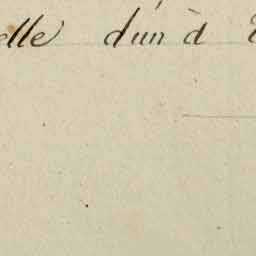 elle d'un à